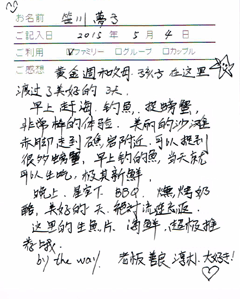 お名前 笹川 夢子
ご記入日 2015年5月4日
ご利用 ☑ファミリー □グループ □カップル
ご感想 黄金週和父母、孩子在这里
渡过了美好的3天.
早上赶海、钓鱼、捉螃蟹,
非常棒的体验. 美丽的沙滩
赤脚走到礁岩附近, 可以捉到
很多螃蟹, 早上钓的鱼, 当天就
可以生吃, 极其新鲜,
晚上. 星空下 BBQ, 烧烤奶
酪, 美好的天, 绝对流连忘返.
这里的生鱼片、海鲜, 超极推
荐哦.
by the way. 老板善良, 淳朴. 大好き!